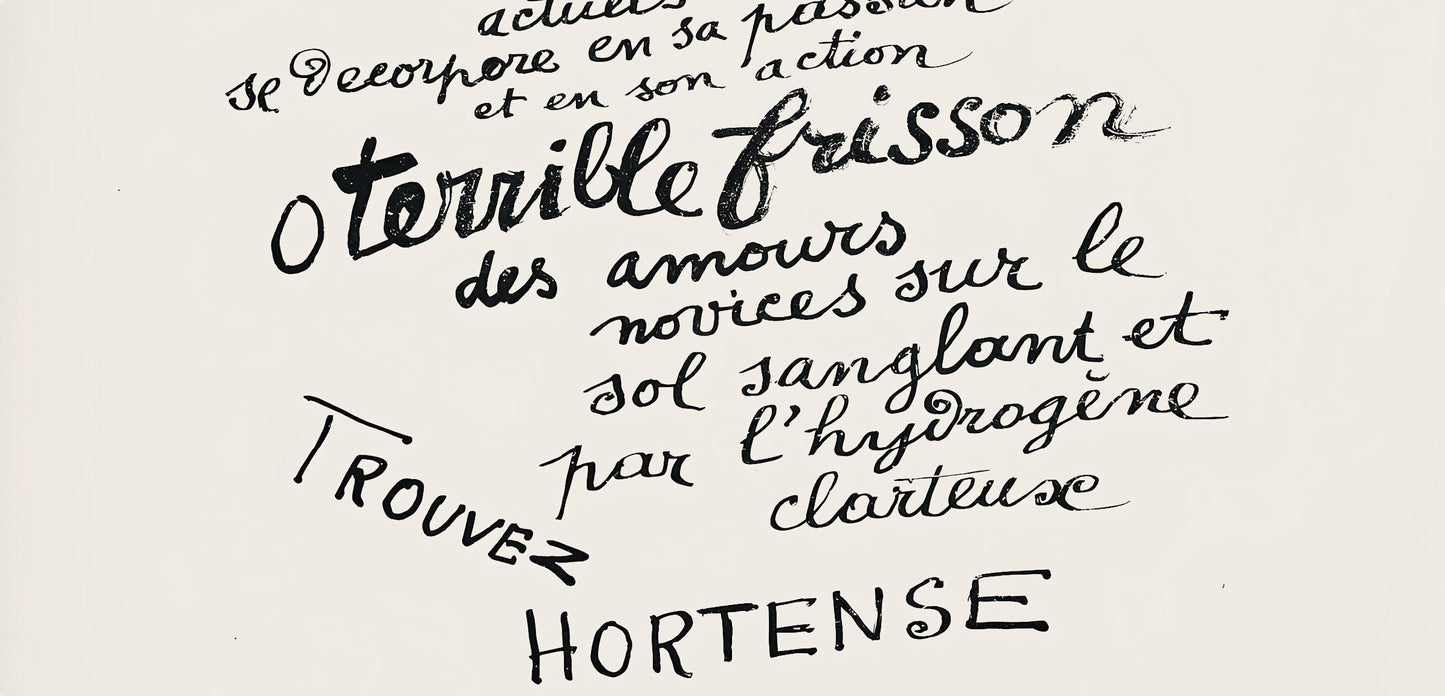 actuels
se decorpore en sa passion
et en son action
O terrible frisson
des amours
novices sur le
sol sanglant et
par l'hydrogène
clarteux
TROUVEZ
HORTENSE